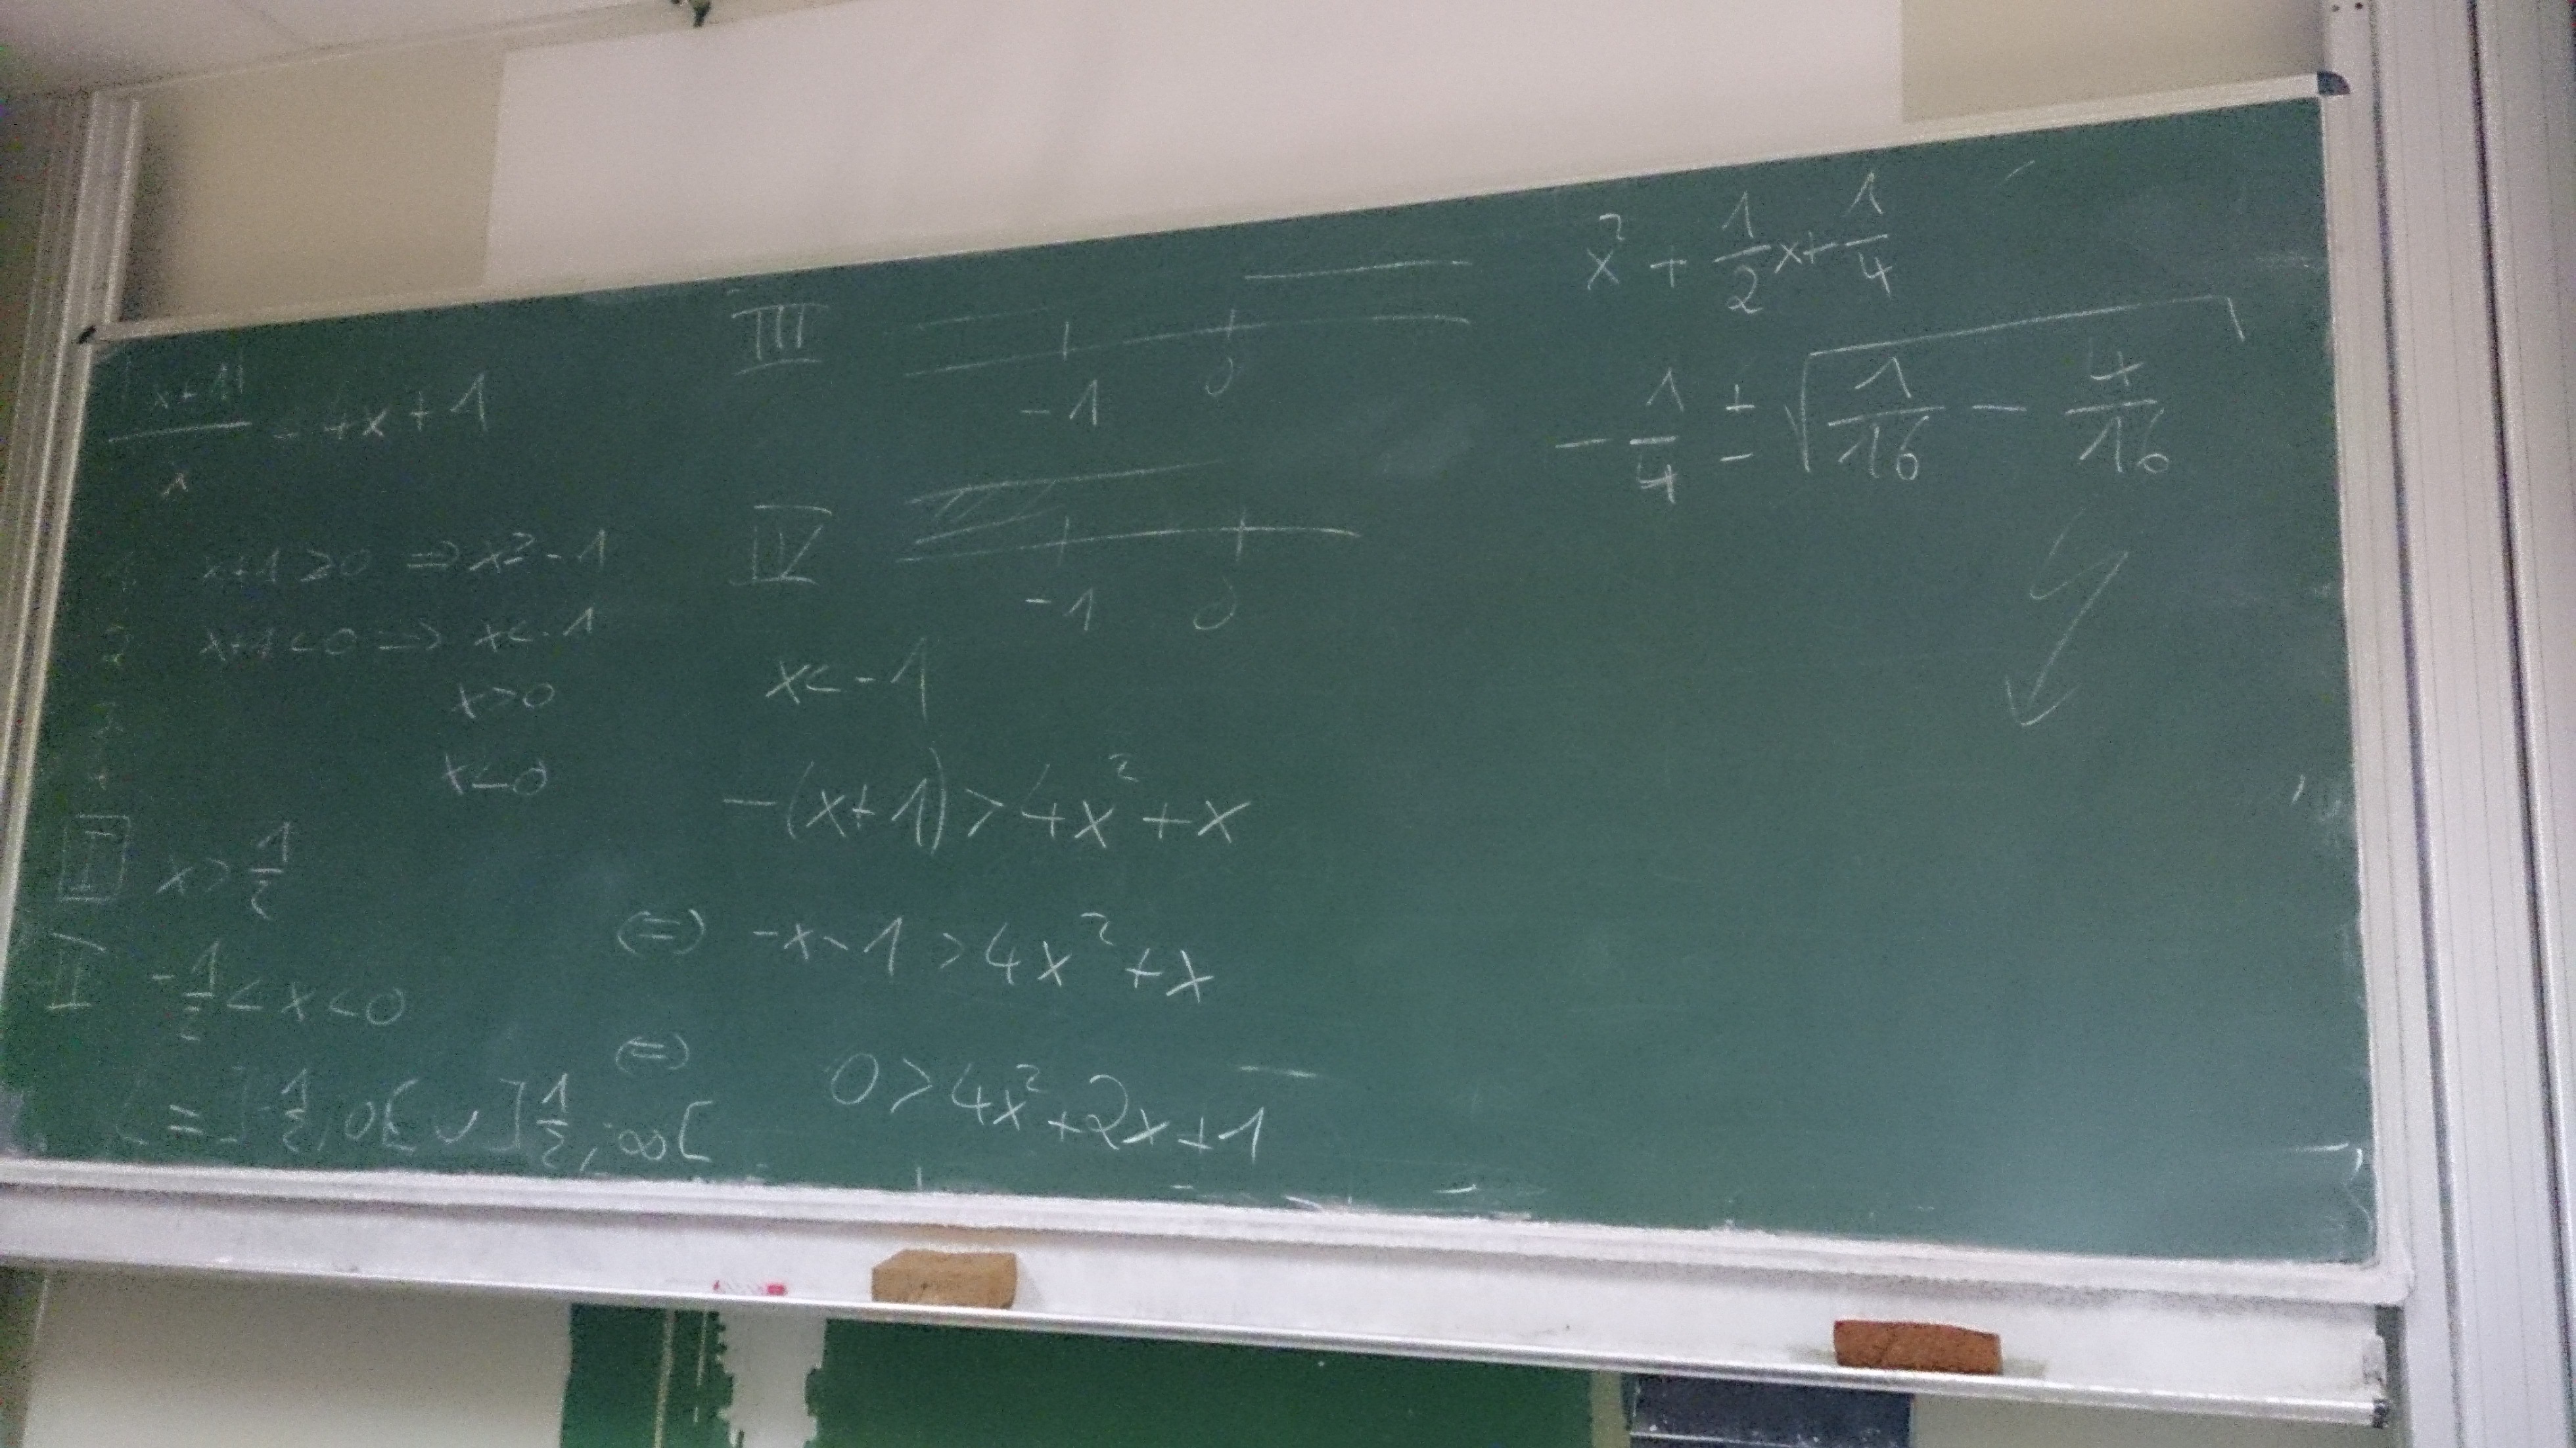 |x+1|
/x = 4x+1
1 x+1≥0 ⇒ x≥-1
2 x+1<0 ⇒ x<-1
x>0
x<0
I x>1/2
II -1/2<x<0
L = ]-1/2, 0[ ∪ ]1/2, ∞[
III
-1 0
IV
-1 0
x<-1
-(x+1)>4x²+x
(=) -x-1>4x²+x
(=) 0>4x²+2x+1
x²+1/2x+1/4
-1/4 ± √(1/16 - 4/16)